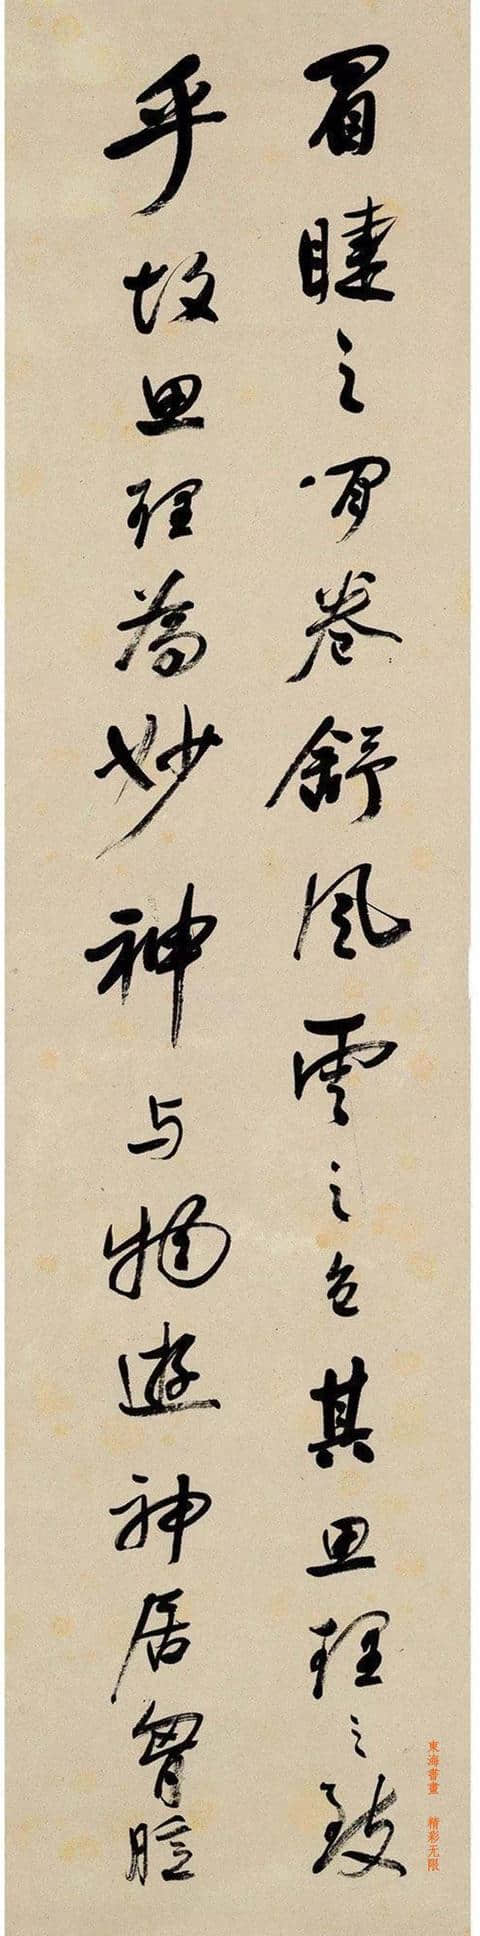 眉睫之间卷舒風雲之色其思理之致
乎故思理為妙神与物遊神居胷臆
東海書畫 精彩无限